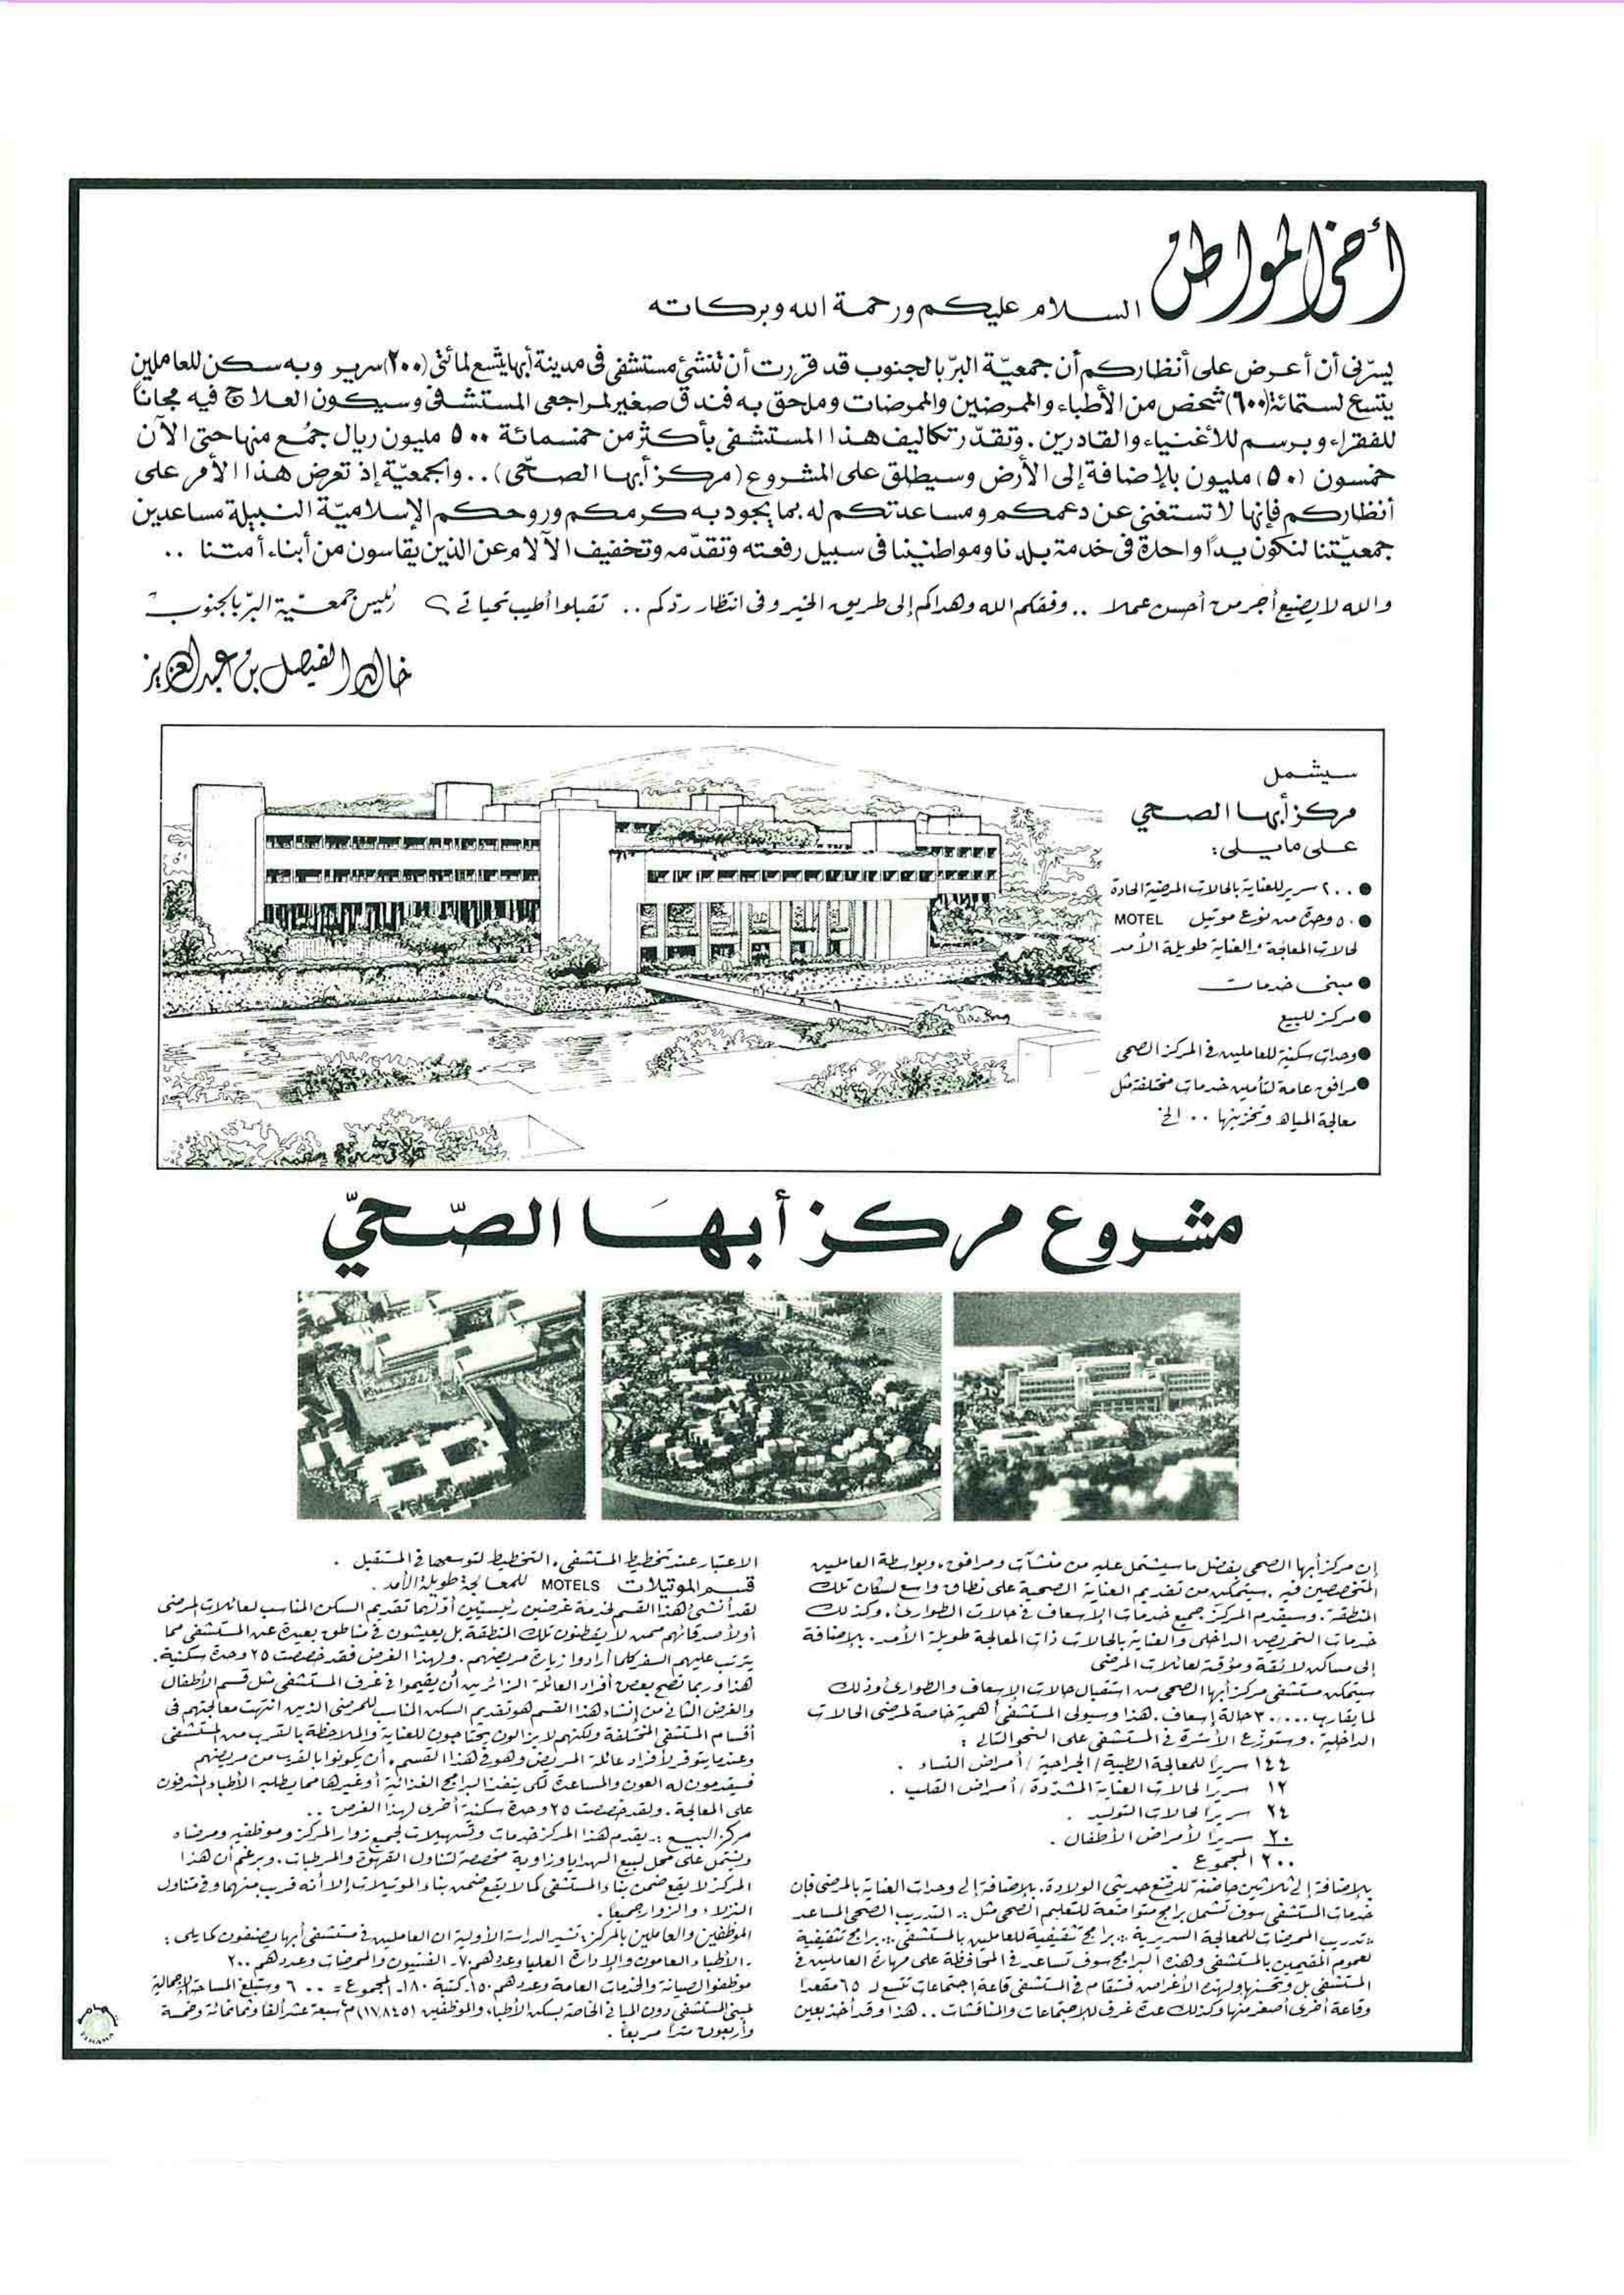 أخي المواطن
السلام عليكم ورحمة الله وبركاته
يسرّني أن أعرض على أنظاركم أن جمعيّة البرّ بالجنوب قد قررت أن تنشئ مستشفى في مدينة أبها يتّسع لمائتي (٢٠٠) سرير وبه سكن للعاملين
يتسع لستمائة (٦٠٠) شخص من الأطباء والممرضين والممرضات وملحق به فندق صغير لمراجعي المستشفى وسيكون العلاج فيه مجاناً
للفقراء وبرسم للأغنياء والقادرين . وتقدّر تكاليف هذا المستشفى بأكثر من خمسمائة ٥٠٠ مليون ريال جُمع منها حتى الآن
خمسون (٥٠) مليون بالإضافة إلى الأرض وسيطلق على المشروع (مركز أبها الصحّي) .. والجمعيّة إذ تعرض هذا الأمر على
أنظاركم فإنها لا تستغني عن دعمكم ومساعدتكم له بما يجود به كرمكم وروحكم الإسلاميّة النبيلة مساعدين
جمعيّتنا لنكون يداً واحدة في خدمة بلدنا ومواطنينا في سبيل رفعته وتقدّمه وتخفيف الآلام عن الذين يقاسون من أبناء أمتنا ..
والله لا يضيع أجر من أحسن عملا .. وفقكم الله وهداكم إلى طريق الخير وفي انتظار ردّكم .. تقبلوا أطيب تحياتي ،
رئيس جمعيّة البرّ بالجنوب
خالد الفيصل بن عبدالعزيز
سيشمل
مركز أبها الصحي
على ما يلي :
● ٢٠٠ سرير للعناية بالحالات المرضية الحادة
● ٥٠ وحدة من نوع موتيل MOTEL
لحالات المعالجة والعناية طويلة الأمد
● مبنى خدمات
● مركز للبيع
● وحدات سكنية للعاملين في المركز الصحي
● مرافق عامة لتأمين خدمات مختلفة مثل
معالجة المياه وتخزينها .. الخ
مشروع مركز أبها الصّحيّ
إن مركز أبها الصحي بفضل ما سيشتمل عليه من منشآت ومرافق ، وبواسطة العاملين
المتخصصين فيه . سيتمكن من تقديم العناية الصحية على نطاق واسع لسكان تلك
المنطقة . وسيقدم المركز جميع خدمات الإسعاف في حالات الطوارئ ، وكذلك
خدمات التمريض الداخلي والعناية بالحالات ذات المعالجة طويلة الأمد . بالإضافة
إلى مساكن لائقة ومؤقتة لعائلات المرضى
سيتمكن مستشفى مركز أبها الصحي من استقبال حالات الإسعاف والطوارئ وذلك
لما يقارب ٣٠،٠٠٠ حالة إسعاف . هذا وسيولي المستشفى أهمية خاصة لمرضى الحالات
الداخلية . وستوزع الأسّرة في المستشفى على النحو التالي :
١٤٤ سريراً للمعالجة الطبية / الجراحية / أمراض النساء .
١٢ سريراً لحالات العناية المشدّدة / أمراض القلب .
٢٤ سريراً لحالات التوليد .
٢٠ سريراً لأمراض الأطفال .
٢٠٠ المجموع .
بالإضافة إلى ثلاثين حاضنة للرضع حديثي الولادة . بالإضافة إلى وحدات العناية بالمرضى فإن
خدمات المستشفى سوف تشمل برامج متواضعة للتعليم الصحي مثل : التدريب الصحي المساعد
تدريب الممرضات للمعالجة السريرية برامج تثقيفية للعاملين بالمستشفى برامج تثقيفية
لعموم المقيمين بالمستشفى وهذه البرامج سوف تساعد في المحافظة على مهارة العاملين في
المستشفى بل وتحسنها ولهذه الأغراض فستقام في المستشفى قاعة إجتماعات تتسع لـ ٦٥ مقعدا
وقاعة أخرى أصغر منها وكذلك عدة غرف للإجتماعات والمناقشات .. هذا وقد أخذ بعين
الاعتبار عند تخطيط المستشفى ، التخطيط لتوسعها في المستقبل .
قسم الموتيلات MOTELS للمعالجة طويلة الأمد .
لقد أنشئ هذا القسم لخدمة غرضين رئيسيين أولهما تقديم السكن المناسب لعائلات المرضى
أو لأصدقائهم ممن لا يقطنون تلك المنطقة بل يعيشون في مناطق بعيدة عن المستشفى مما
يترتب عليهم السفر كلما أرادوا زيارة مريضهم . ولهذا الغرض فقد خصصت ٢٥ وحدة سكنية .
هذا وربما نصح بعض أفراد العائلة الزائرين أن يقيموا في غرف المستشفى مثل قسم الأطفال
والغرض الثاني من إنشاء هذا القسم هو تقديم السكن المناسب للمرضى الذين انتهت معالجتهم في
أقسام المستشفى المختلفة ولكنهم لا يزالون يحتاجون للعناية والملاحظة بالقرب من المستشفى
وعندما يتوفر لأفراد عائلة المريض وهو في هذا القسم ، أن يكونوا بالقرب من مريضهم
فسيقدمون له العون والمساعدة لكي ينفذ البرامج الغذائية أو غيرها مما يطلبه الأطباء المشرفون
على المعالجة . ولقد خصصت ٢٥ وحدة سكنية أخرى لهذا الغرض ..
مركز البيع : يقدم هذا المركز خدمات وتسهيلات لجميع زوار المركز وموظفيه ومرضاه
ويشتمل على محل لبيع الهدايا وزاوية مخصصة لتناول القهوة والمرطبات . وبرغم أن هذا
المركز لا يقع ضمن بناء المستشفى كما لا يقع ضمن بناء الموتيلات إلا أنه قريب منهما وفي متناول
النزلاء والزوار جميعاً .
الموظفين والعاملين بالمركز : تشير الدراسة الأولية ان العاملين في مستشفى أبها يصنفون كما يلي :
ـ الأطباء العامون والإدارة العليا وعددهم ٧٠ ـ الفنيون والممرضات وعددهم ٢٠٠
موظفوا الصيانة والخدمات العامة وعددهم ١٥٠ ـ كتبة ١٨٠ ـ المجموع = ٦٠٠ وستبلغ المساحة الإجمالية
لمبنى المستشفى دون المباني الخاصة بسكن الأطباء والموظفين (١٧،٨٤٥) م٢ سبعة عشر ألفا وثمانمائة وخمسة
وأربعون مترا مربعاً .
تهامة
TIHAMA